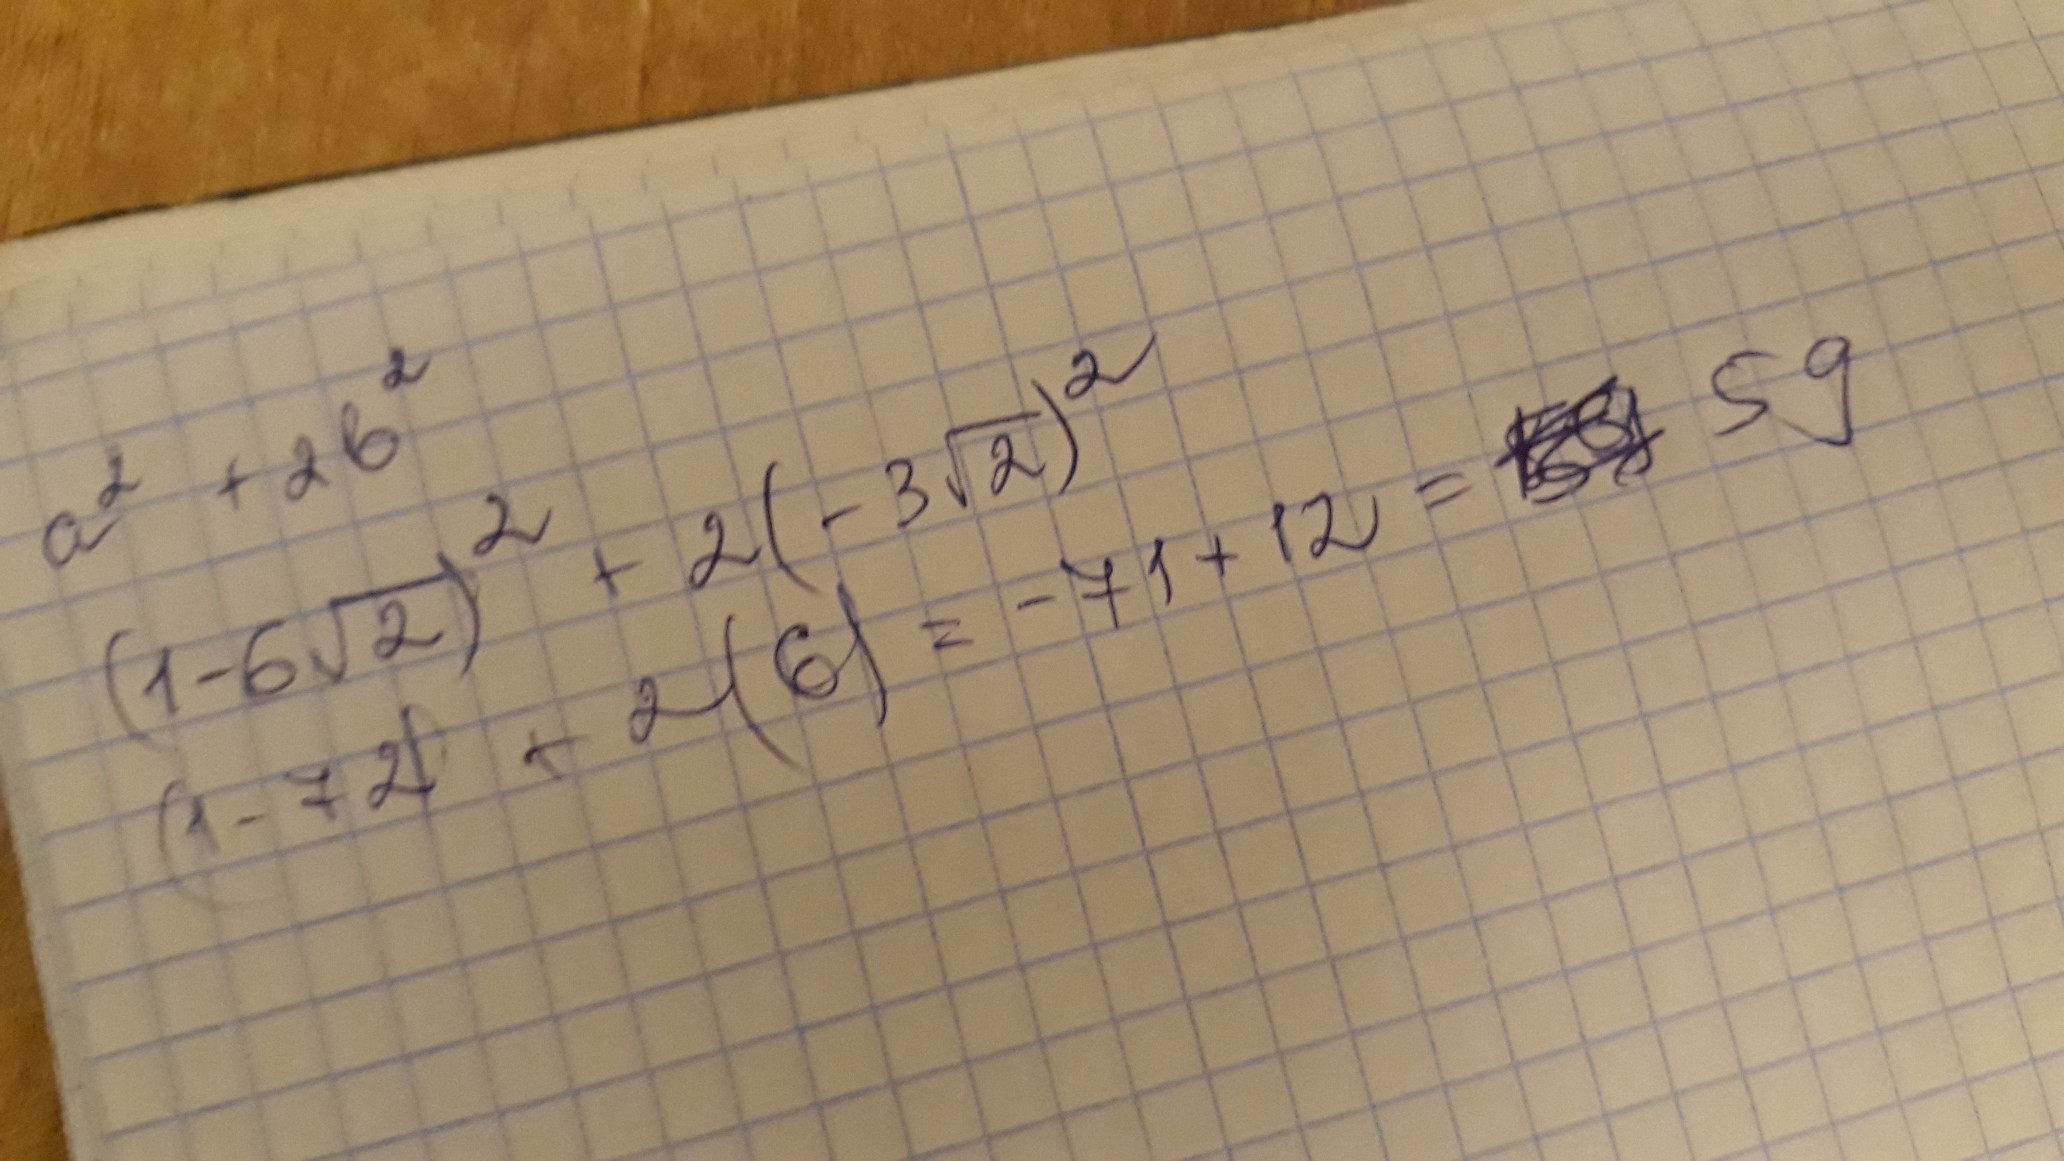 a² + 2b²
(1-6√2)² + 2(-3√2)²
(1-72) + 2(6) = -71+12 = 59